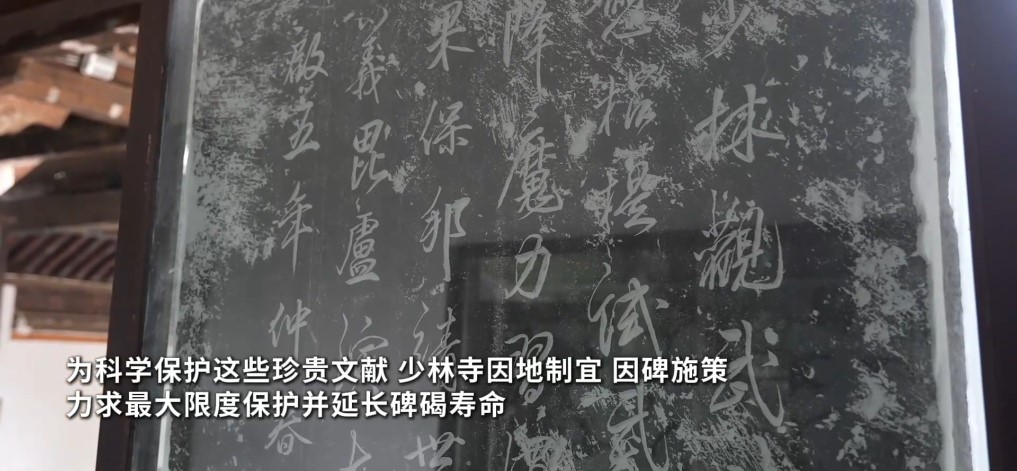 少林觀武
憩招提試武
降魔力習慣
果保邦靖世
義毘盧演大
啟五年仲春
为科学保护这些珍贵文献 少林寺因地制宜 因碑施策
力求最大限度保护并延长碑碣寿命